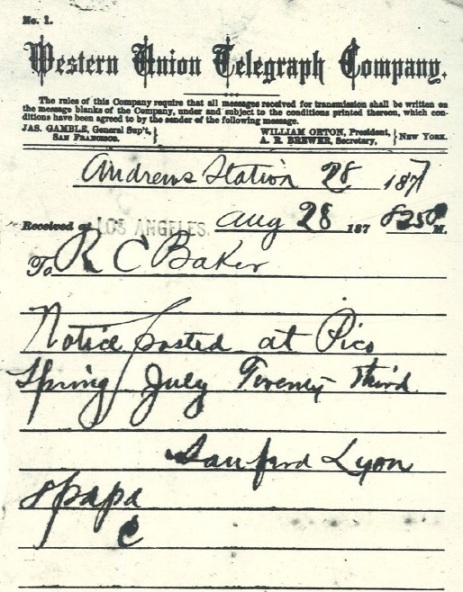 No. 1.
Western Union Telegraph Company.
The rules of this Company require that all messages received for transmission shall be written on
the message blanks of the Company, under and subject to the conditions printed thereon, which con-
ditions have been agreed to by the sender of the following message.
JAS. GAMBLE, General Sup't, SAN FRANCISCO. } WILLIAM ORTON, President, A. R. BREWER, Secretary, } NEW YORK.
Andrews Station 28 187
Received at LOS ANGELES. Aug 28 187 M.
To R C Baker
Notice posted at Pico
Spring July Twenty third
Sanford Lyon
8 papa